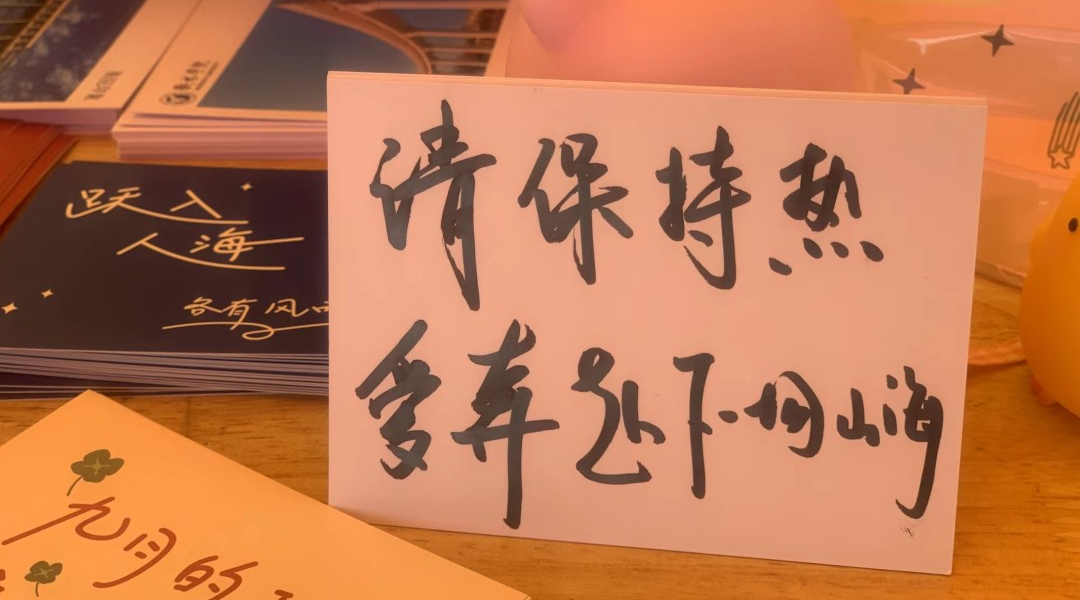 请保持热
爱奔赴下一场山海
跃入
人海
各有风雨
九月的